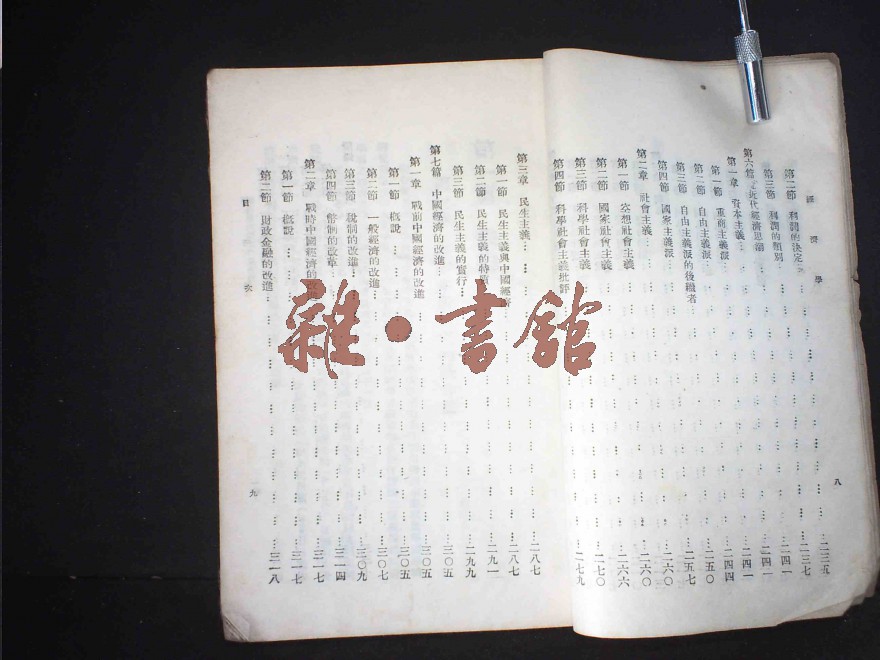 經濟學
第二節 利潤的決定……二三五
第三節 利潤的類別……二三七
第六篇 近代經濟思潮……二四一
第一章 資本主義……二四一
第一節 重商主義派……二四一
第二節 自由主義派……二四四
第三節 自由主義派的後繼者……二五〇
第四節 國家主義派……二五七
第二章 社會主義……二六〇
第一節 空想社會主義……二六〇
第二節 國家社會主義……二六六
第三節 科學社會主義……二七〇
第四節 科學社會主義批評……二七九
八
第三章 民生主義……二八七
第一節 民生主義與中國經濟……二八七
第二節 民生主義的特……二九一
第三節 民生主義的實行……二九九
第七篇 中國經濟的改進……三〇五
第一章 戰前中國經濟的改進……三〇五
第一節 概說……三〇五
第二節 一般經濟的改進……三〇七
第三節 稅制的改進……三〇九
第四節 幣制的改革……三一四
第二章 戰時中國經濟的改進……三一七
第一節 概說……三一七
第二節 財政金融的改進……三一八
目次
九
雜·書館